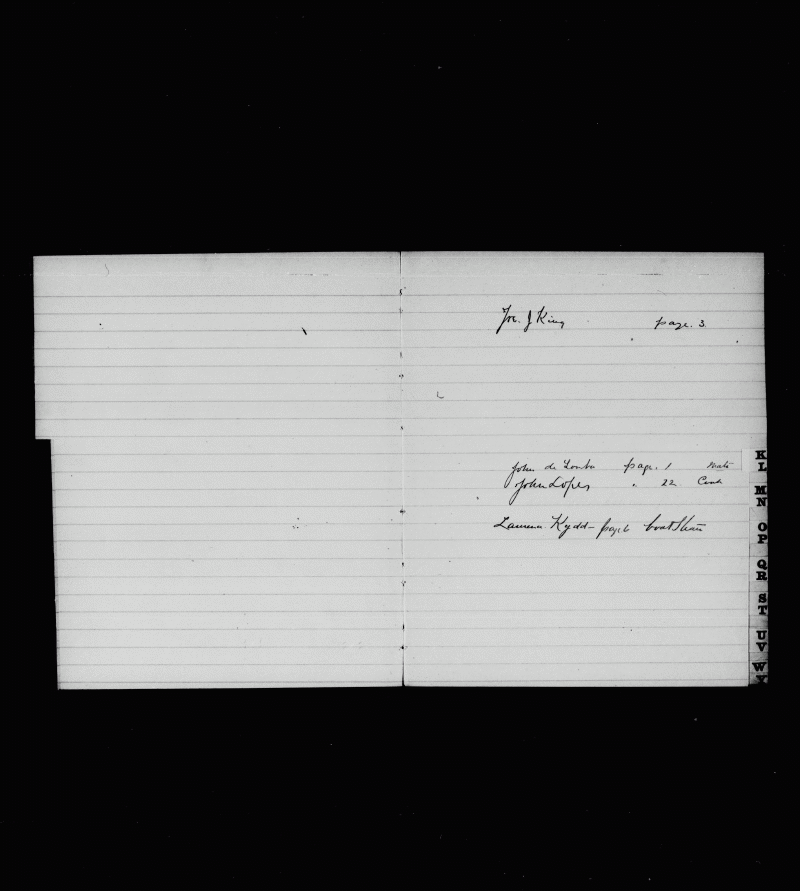 Jos. J King page. 3
John de Lomba page. 1 Mate
John Lopes " 22 Cook
Laurence Kydd - page 6 boat Steer
K
L
M
N
O
P
Q
R
S
T
U
V
W
X